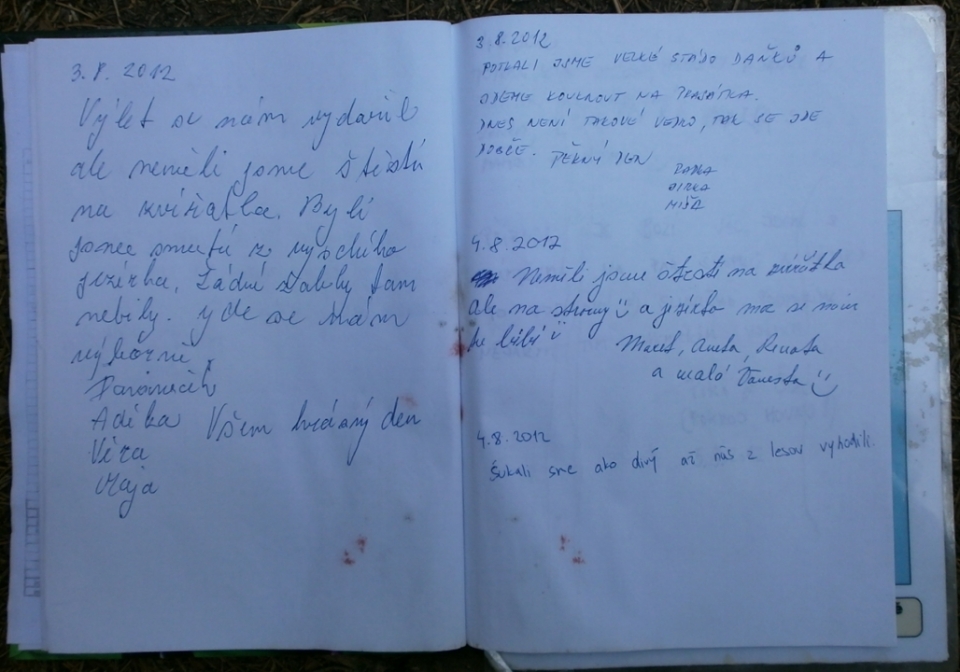 3.8.2012
Výlet se nám vydařil
ale neměli jsme štěstí
na zvířátka. Byli
jsme smutní z vyschlého
jezírka. Žádné žabky tam
nebyly. Jde se nám
výborně.
Adéka Všem krásný den
Věra
Mája
3.8.2012
POTKALI JSME VELKÉ STÁDO DAŇKŮ A
JDEME KOUKNOUT NA PRASÁTKA.
DNES NENÍ TAKOVÉ VEDRO, TAK SE JDE
DOBŘE. PĚKNÝ DEN
RADKA
MIŠA
4.8.2012
Neměli jsme štěstí na zvířátka
ale na stromy a jezírko ma se mim
ke líbí
Marek, Aneta, Renata
a malá Vanesta
4.8.2012
Šukali sme ako divý až nás z lesov vyhodili.